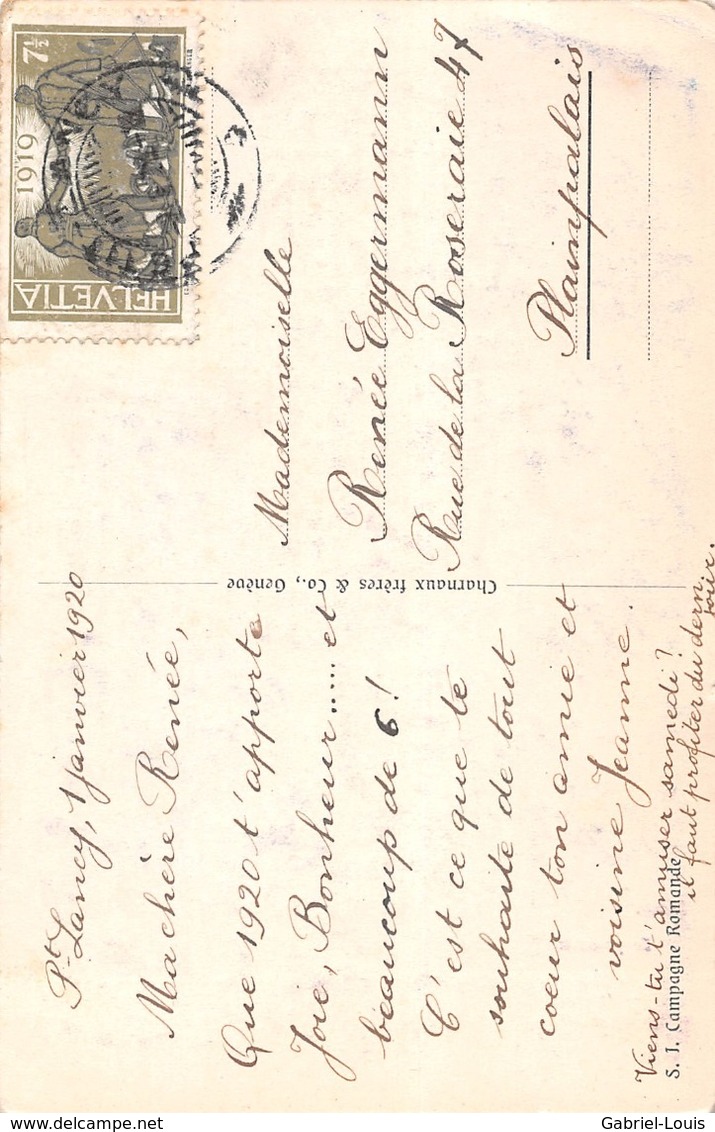 Pt Lancy, 1 janvier 1920
Ma chère Renée,
Que 1920 t'apporte
Joie, Bonheur..... et
beaucoup de 6!
C'est ce que te
souhaite de tout
coeur ton amie et
voisine Jeanne.
Viens-tu t'amuser samedi?
il faut profiter du dern.
jour.
S. J. Campagne Romande
Charnaux frères & Co., Genève
Mademoiselle
Renée Eggermann
Rue de la Roseraie 47
Plainpalais
7½
1919
HELVETIA
Gabriel-Louis